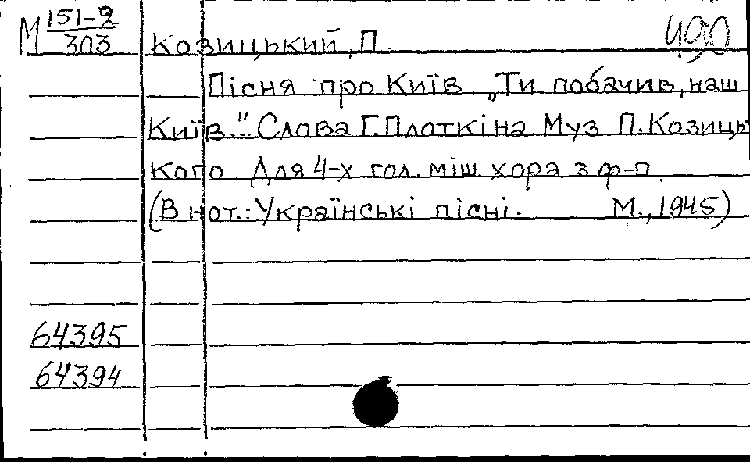 М 151-2/303
Козицький, П. 490
Пісня про Київ „Ти побачив, наш
Київ." Слова Г. Плоткіна Муз П. Козиць
кого Для 4-х гол. міш. хора з ф-п.
(В нот.: Українські пісні. М., 1945)
64395
64394